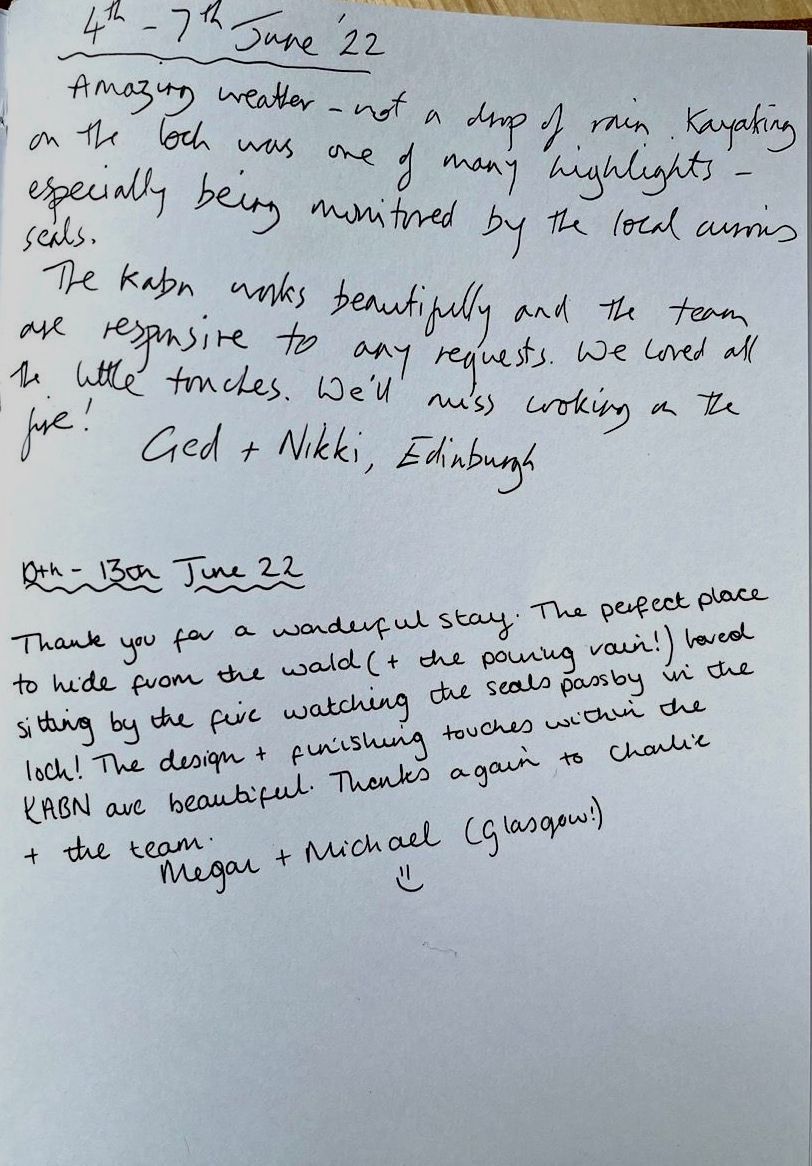 4th - 7th June '22
Amazing weather - not a drop of rain. Kayaking
on the loch was one of many highlights -
especially being monitored by the local curious
seals.
The Kabn works beautifully and the team
are responsive to any requests. We loved all
the little touches. We'll miss cooking on the
fire!
Ged + Nikki, Edinburgh
10th - 13th June 22
Thank you for a wonderful stay. The perfect place
to hide from the world (+ the pouring rain!) loved
sitting by the fire watching the seals pass by in the
loch! The design + finishing touches within the
KABN are beautiful. Thanks again to Charlie
+ the team.
Megan + Michael (Glasgow!)